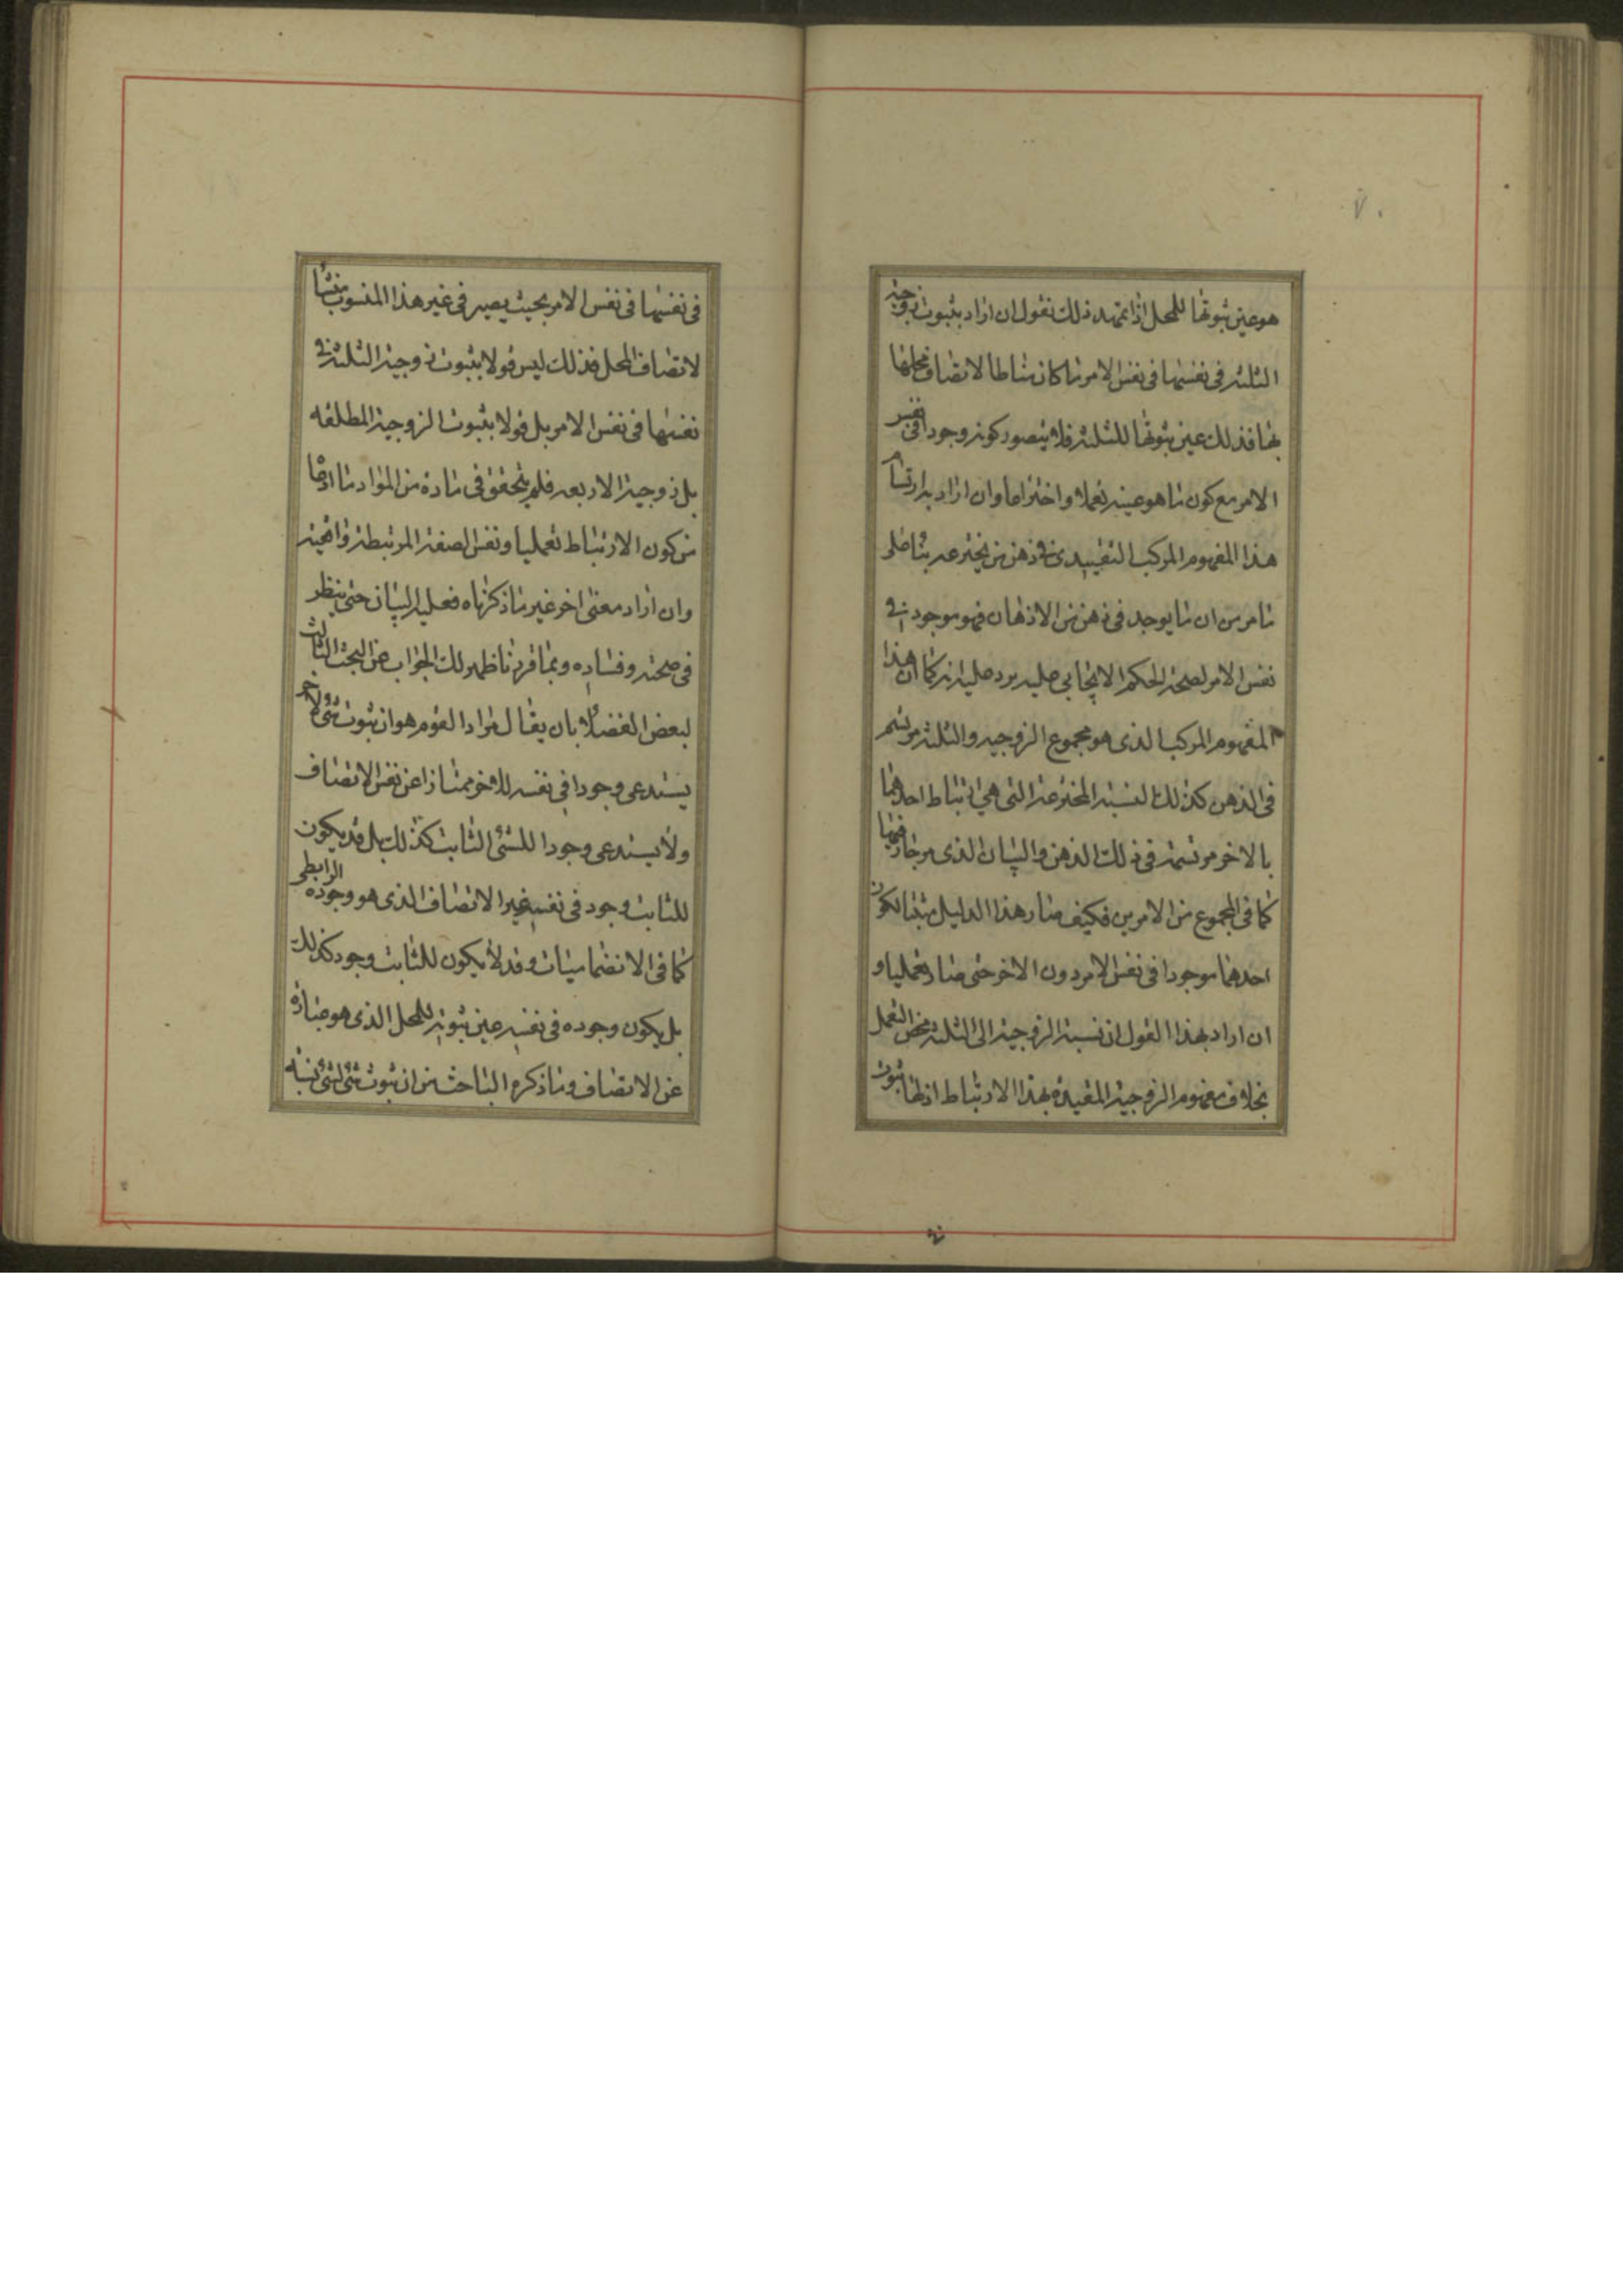 ٧٠
هو عين ثبوتها للمحل اذا تمهد ذلك نقول ان اراد بثبوت زوجية
الثلثة فى نفسها فى نفس الامر ما كان مناطا لاتصاف محلها
بها فذلك عين ثبوتها للثلثة فلا يتصور كونه وجودا فى نفس
الامر مع كون ما هو عينه تعملا واختراعا وان اراد به ارتسام
هذا المفهوم المركب التقييدى فى ذهن من يخترعه بناء على
ما مر من ان ما يوجد فى ذهن من الاذهان فهو موجود فى
نفس الامر لصحة الحكم الايجابي عليه يرد عليه انه كما ان هذا
المفهوم المركب الذى هو مجموع الزوجيه والثلثة مرتسم
فى الذهن كذلك النسبة المخترعة التى هي ارتباط احدهما
بالاخر مرتسمة فى ذلك الذهن والبيان الذى مر جار فيها
كما فى المجموع من الامرين فكيف صار هذا الدليل مثبتا لكون
احدهما موجودا فى نفس الامر دون الاخر حتى صار تعمليا و
ان اراد بهذا القول ان نسبة الزوجية الى الثلثة محض التعمل
بخلاف مفهوم الزوجية المقيدة بهذا الارتباط اذ لها ثبوت
فى نفسها فى نفس الامر بحيث يصير فى غير هذا المنسوب منشأ
لاتصاف المحل فذلك ليس قولا بثبوت زوجية الثلثة فى
نفسها فى نفس الامر بل قولا بثبوت الزوجية المطلقه
بل زوجية الاربعه فلم يتحقق فى مادة من المواد ما ادعا
من كون الارتباط تعمليا ونفس الصفة المرتبطة واقعية
وان اراد معنى اخر غير ما ذكرناه فعليه البيان حتى ينظر
فى صحته وفساده وبما قررنا ظهر لك الجواب عن البحث الثالث
لبعض الفضلاء بان يقال مراد القوم هو ان ثبوت شئ لاخر
يستدعى وجودا فى نفسه للاخر ممتازا عن نفس الاتصاف
ولا يستدعى وجودا للشئ الثابت كذلك بل قد يكون
للثابت وجود فى نفسه غير الاتصاف الذى هو وجوده الرابطى
كما فى الانضماميات وقد لا يكون للثابت وجود كذلك
بل يكون وجوده فى نفسه عين ثبوته للمحل الذى هو عبارة
عن الاتصاف وما ذكره الباحث من ان ثبوت شئ لشئ نسبة